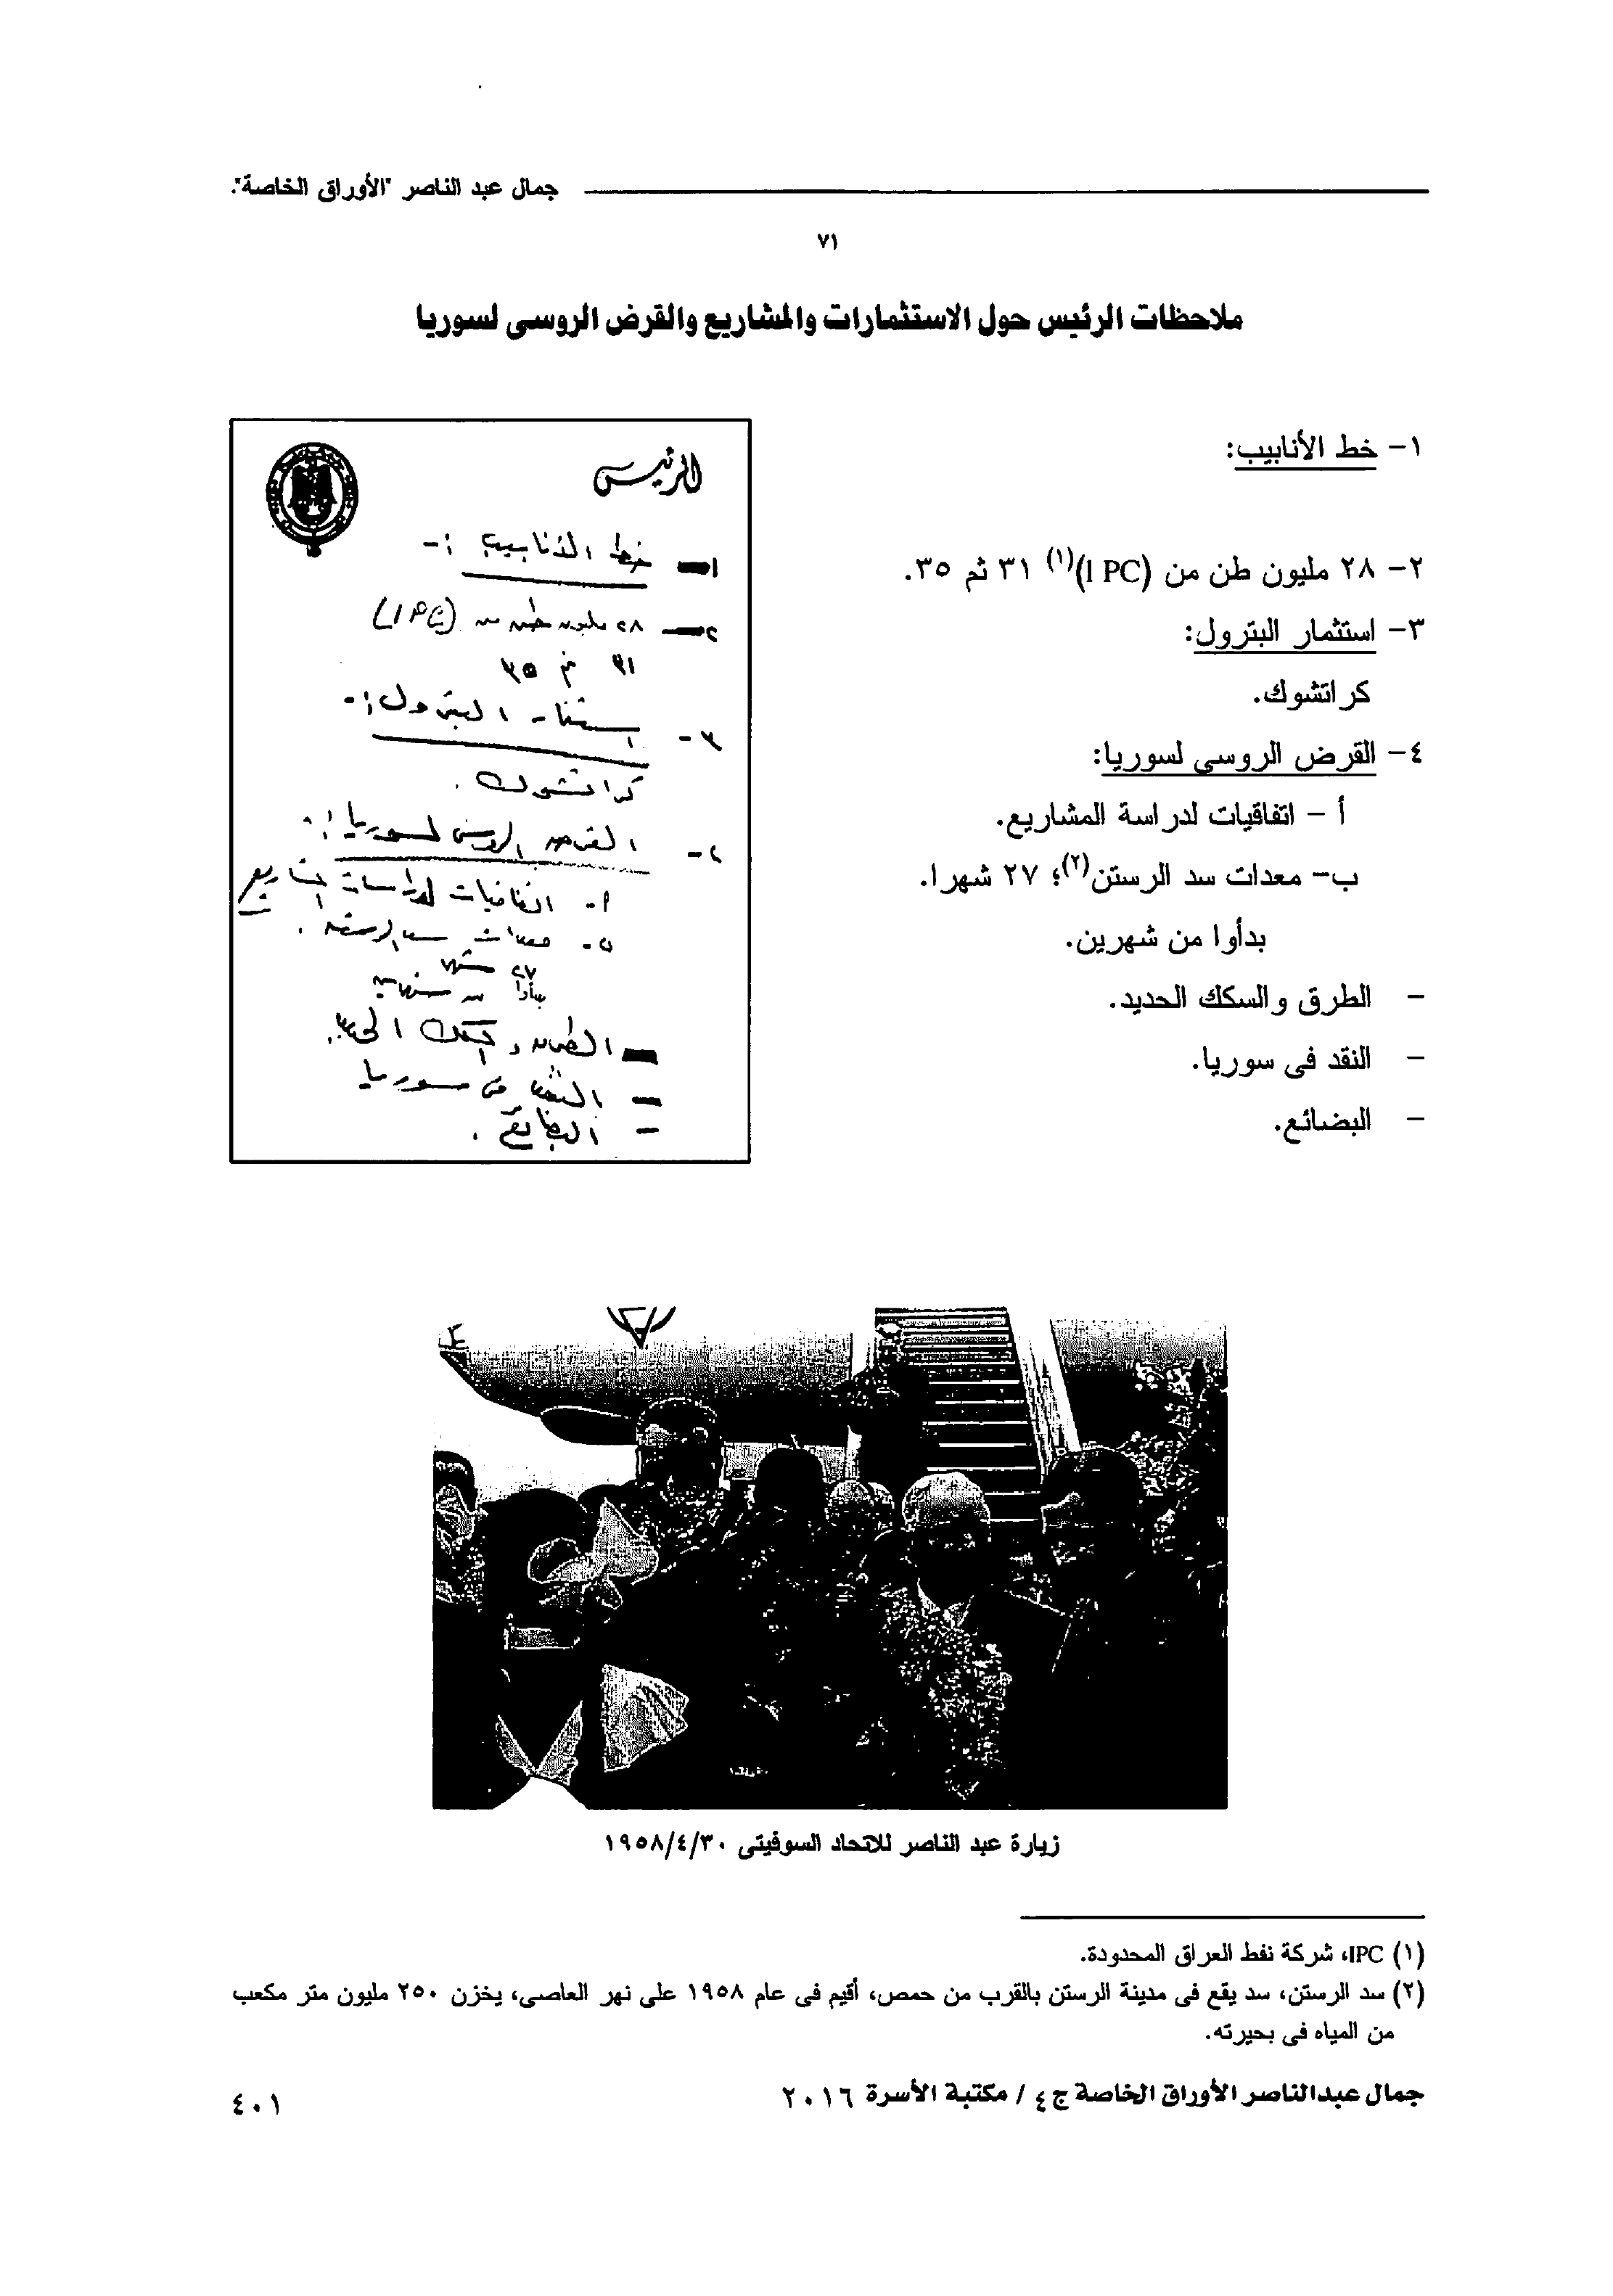 جمال عبد الناصر "الأوراق الخاصة".
٧١
ملاحظات الرئيس حول الاستثمارات والمشاريع والقرض الروسى لسوريا
١- خط الأنابيب:
٢- ٢٨ مليون طن من (I PC)(١) ٣١ ثم ٣٥.
٣- استثمار البترول:
كراتشوك.
٤- القرض الروسى لسوريا:
أ - اتفاقيات لدراسة المشاريع.
ب- معدات سد الرستن(٢)؛ ٢٧ شهرا.
بدأوا من شهرين.
- الطرق والسكك الحديد.
- النقد فى سوريا.
- البضائع.
الرئيس
١- خط الأنابيب :-
٢- ٢٨ مليون طن من (IPC)
٣١ ثم ٣٥
٣- استثمار البترول :-
كراتشوك .
٤- القرض الروسى لسوريا :-
أ- اتفاقيات لدراسات المشاريع
ب- معدات سد الرستن .
٢٧ شهر
بدأوا من شهرين
- الطرق والسكك الحديد .
- النقد فى سوريا
- البضائع .
زيارة عبد الناصر للاتحاد السوفيتى ١٩٥٨/٤/٣٠
(١) IPC، شركة نفط العراق المحدودة.
(٢) سد الرستن، سد يقع فى مدينة الرستن بالقرب من حمص، أقيم فى عام ١٩٥٨ على نهر العاصى، يخزن ٢٥٠ مليون متر مكعب
من المياه فى بحيرته.
جمال عبدالناصر الأوراق الخاصة ج٤ / مكتبة الأسرة ٢٠١٦
٤٠١